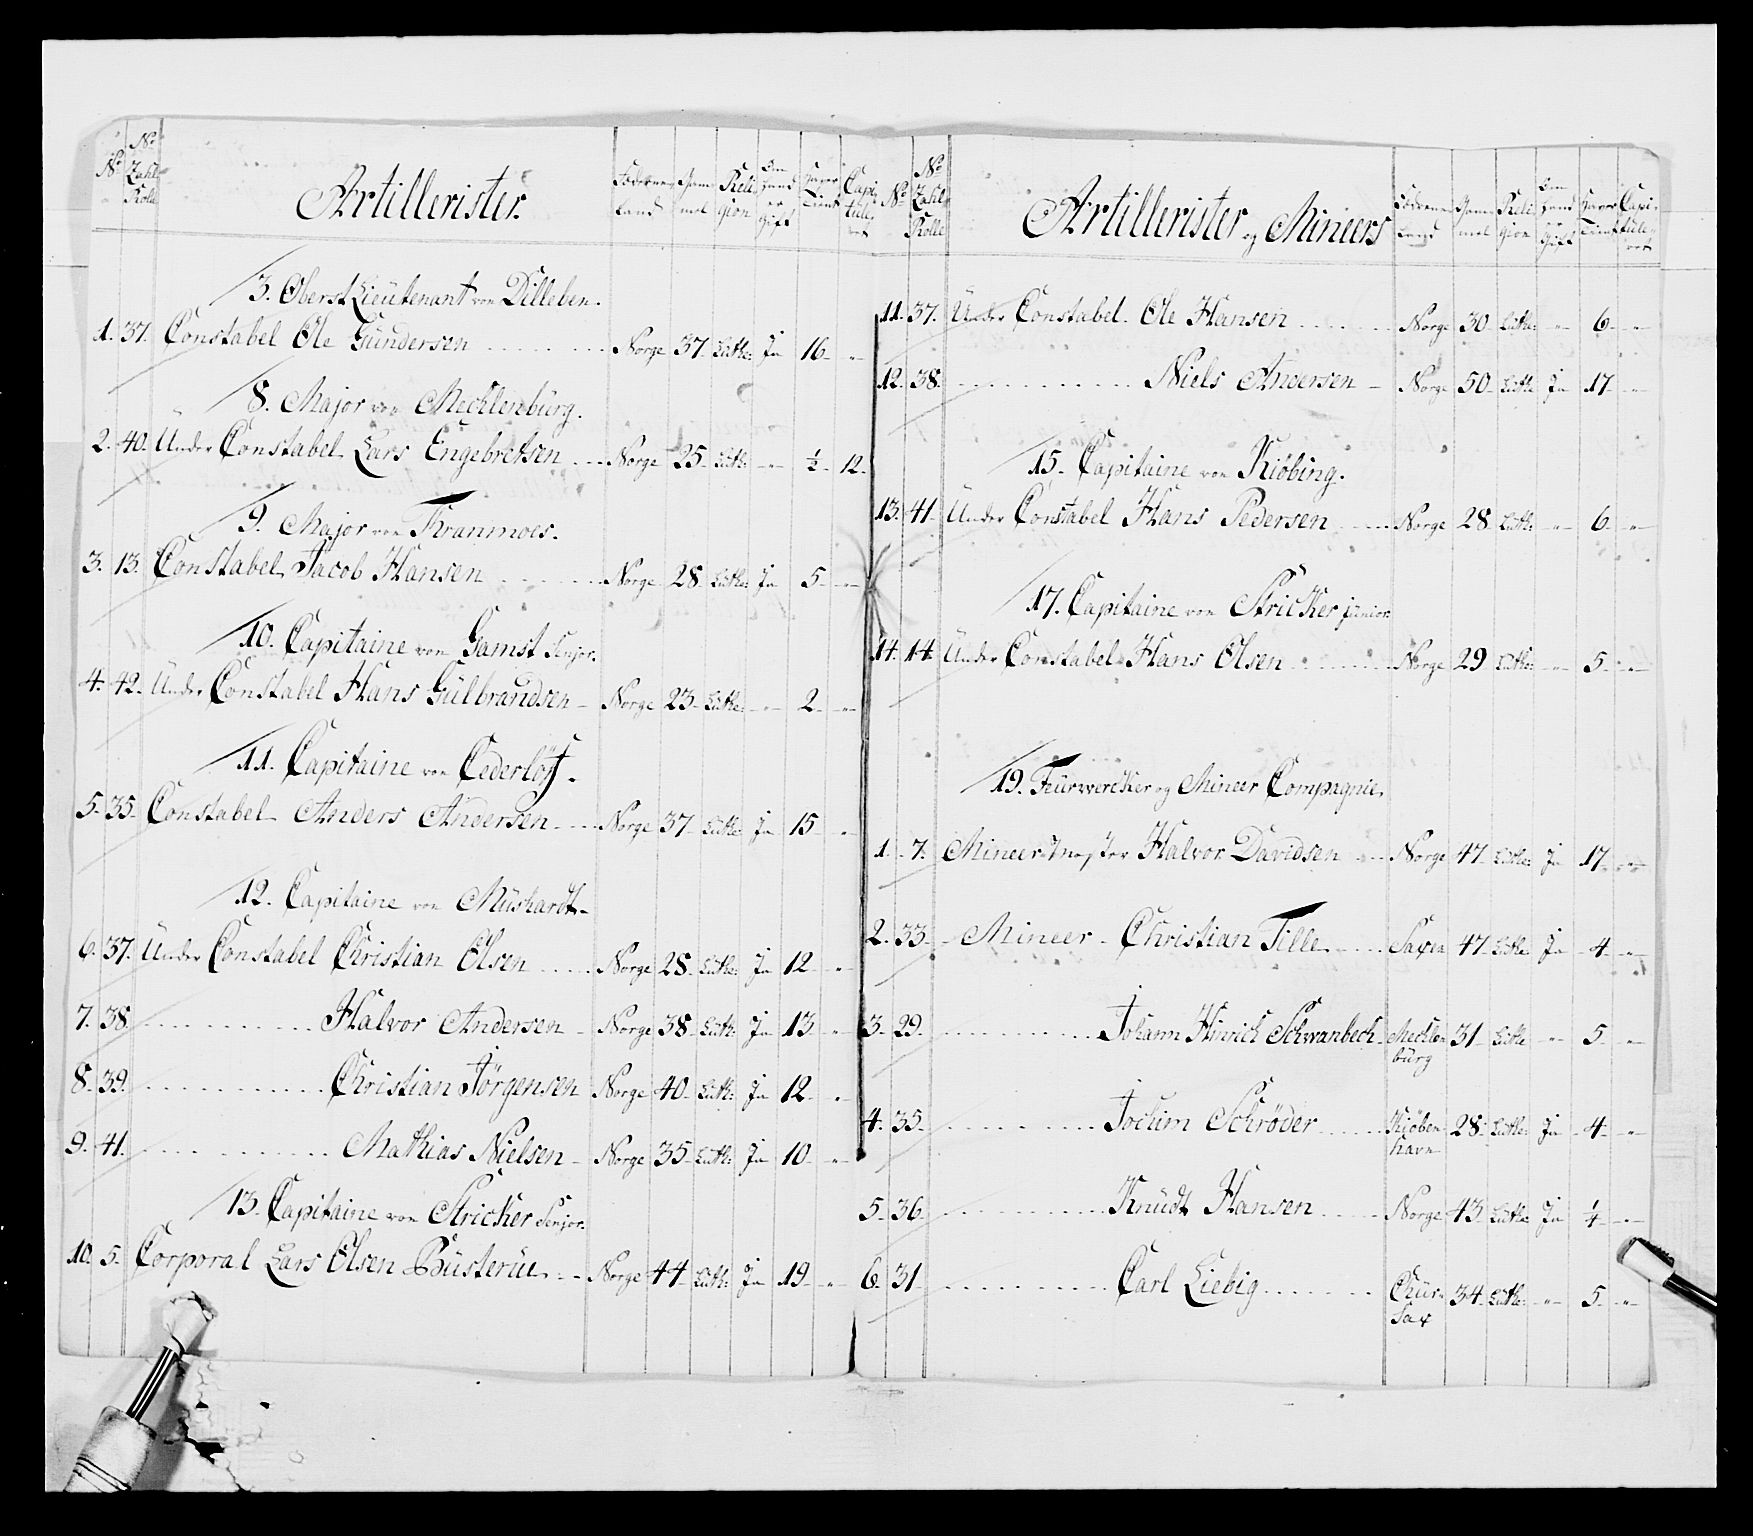 No
No Zahl Rolle
Artillerister.
Födene Land
Gammel
Religion
Om Hand er Gift
Haver Tient
Capituleret
3. Oberst Lieütenant von Dilleben.
1. 37. Constabel Ole Gündersen Norge 37 Luth: Ja 16 "
8. Major von Mecklenbürg.
2. 40. Ünder Constabel Lars Engebretsen Norge 25 Luth: " ½ 12
9. Major von Kranmoes.
3. 13. Constabel Jacob Hansen Norge 28 Luth: Ja 5 "
10. Capitaine von Gamst Senjor.
4. 42. Ünder Constabel Hans Gülbrandsen Norge 23 Luth: " 2 "
11. Capitaine von Cederlöf.
5. 35. Constabel Anders Andersen Norge 37 Luth: Ja 15 "
12. Capitaine von Müshardt
6. 37. Ünder Constabel Christian Olsen Norge 28 Luth: Ja 12 "
7. 38. Halvor Andersen Norge 38 Luth: Ja 13 "
8. 39. Christian Jörgensen Norge 40 Luth: Ja 12 "
9. 41. Mathias Nielsen Norge 35 Luth: Ja 10 "
13. Capitaine von Stricker Senjor.
10. 5. Corporal Lars Olsen Büsterüe Norge 44 Luth: Ja 19 "
No
No Zahl Rolle
Artillerister og Mineers
Födene Land
Gammel
Religion
Om Hand er Gift
Haver Tient
Capituleret
11. 37. Ünder Constabel Ole Hansen Norge 30 Luth: " 6 "
12. 38. Niels Andersen Norge 50 Luth: Ja 17 "
15. Capitaine von Kiöbing.
13. 41. Ünder Constabel Hans Pedersen Norge 28 Luth: " 6 "
17. Capitaine von Stricker junior.
14. 14. Ünder Constabel Hans Olsen Norge 29 Luth: " 5 "
19. Feürwercker og Mineer Compagnie.
1. 7. Mineermester Halvor Davidsen Norge 47 Luth: Ja 17 "
2. 33. Mineer Christian Tille Saxen 47 Luth: Ja 4 "
3. 29. Johann Hinrich Schwanbech Mecklen 31 Luth: " 5 "
bürg
4. 35. Jochim Schrøder Kiöben 28 Luth: Ja 4 "
havn
5. 36. Knüdt Hansen Norge 43 Luth: Ja ¼ "
6. 31 Carl Liebig Chür 34 Luth: " 5 "
Sax